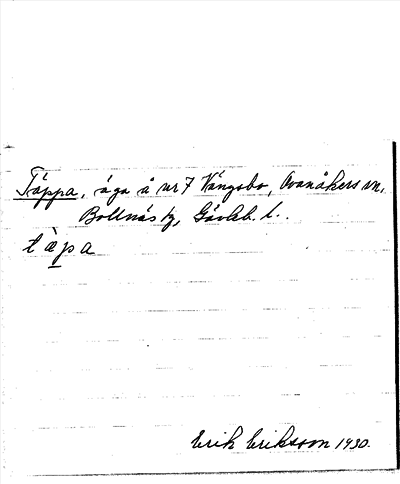 Täppa, äga å nr 7 Vängsbo, Ovanåkers sn,
Bollnäs tg, Gävleb. l.
tæ̀pa
Erik Eriksson 1930.